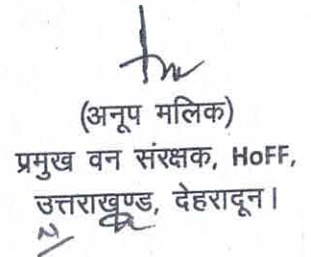 (अनूप मलिक)
प्रमुख वन संरक्षक, HoFF,
उत्तराखण्ड, देहरादून।